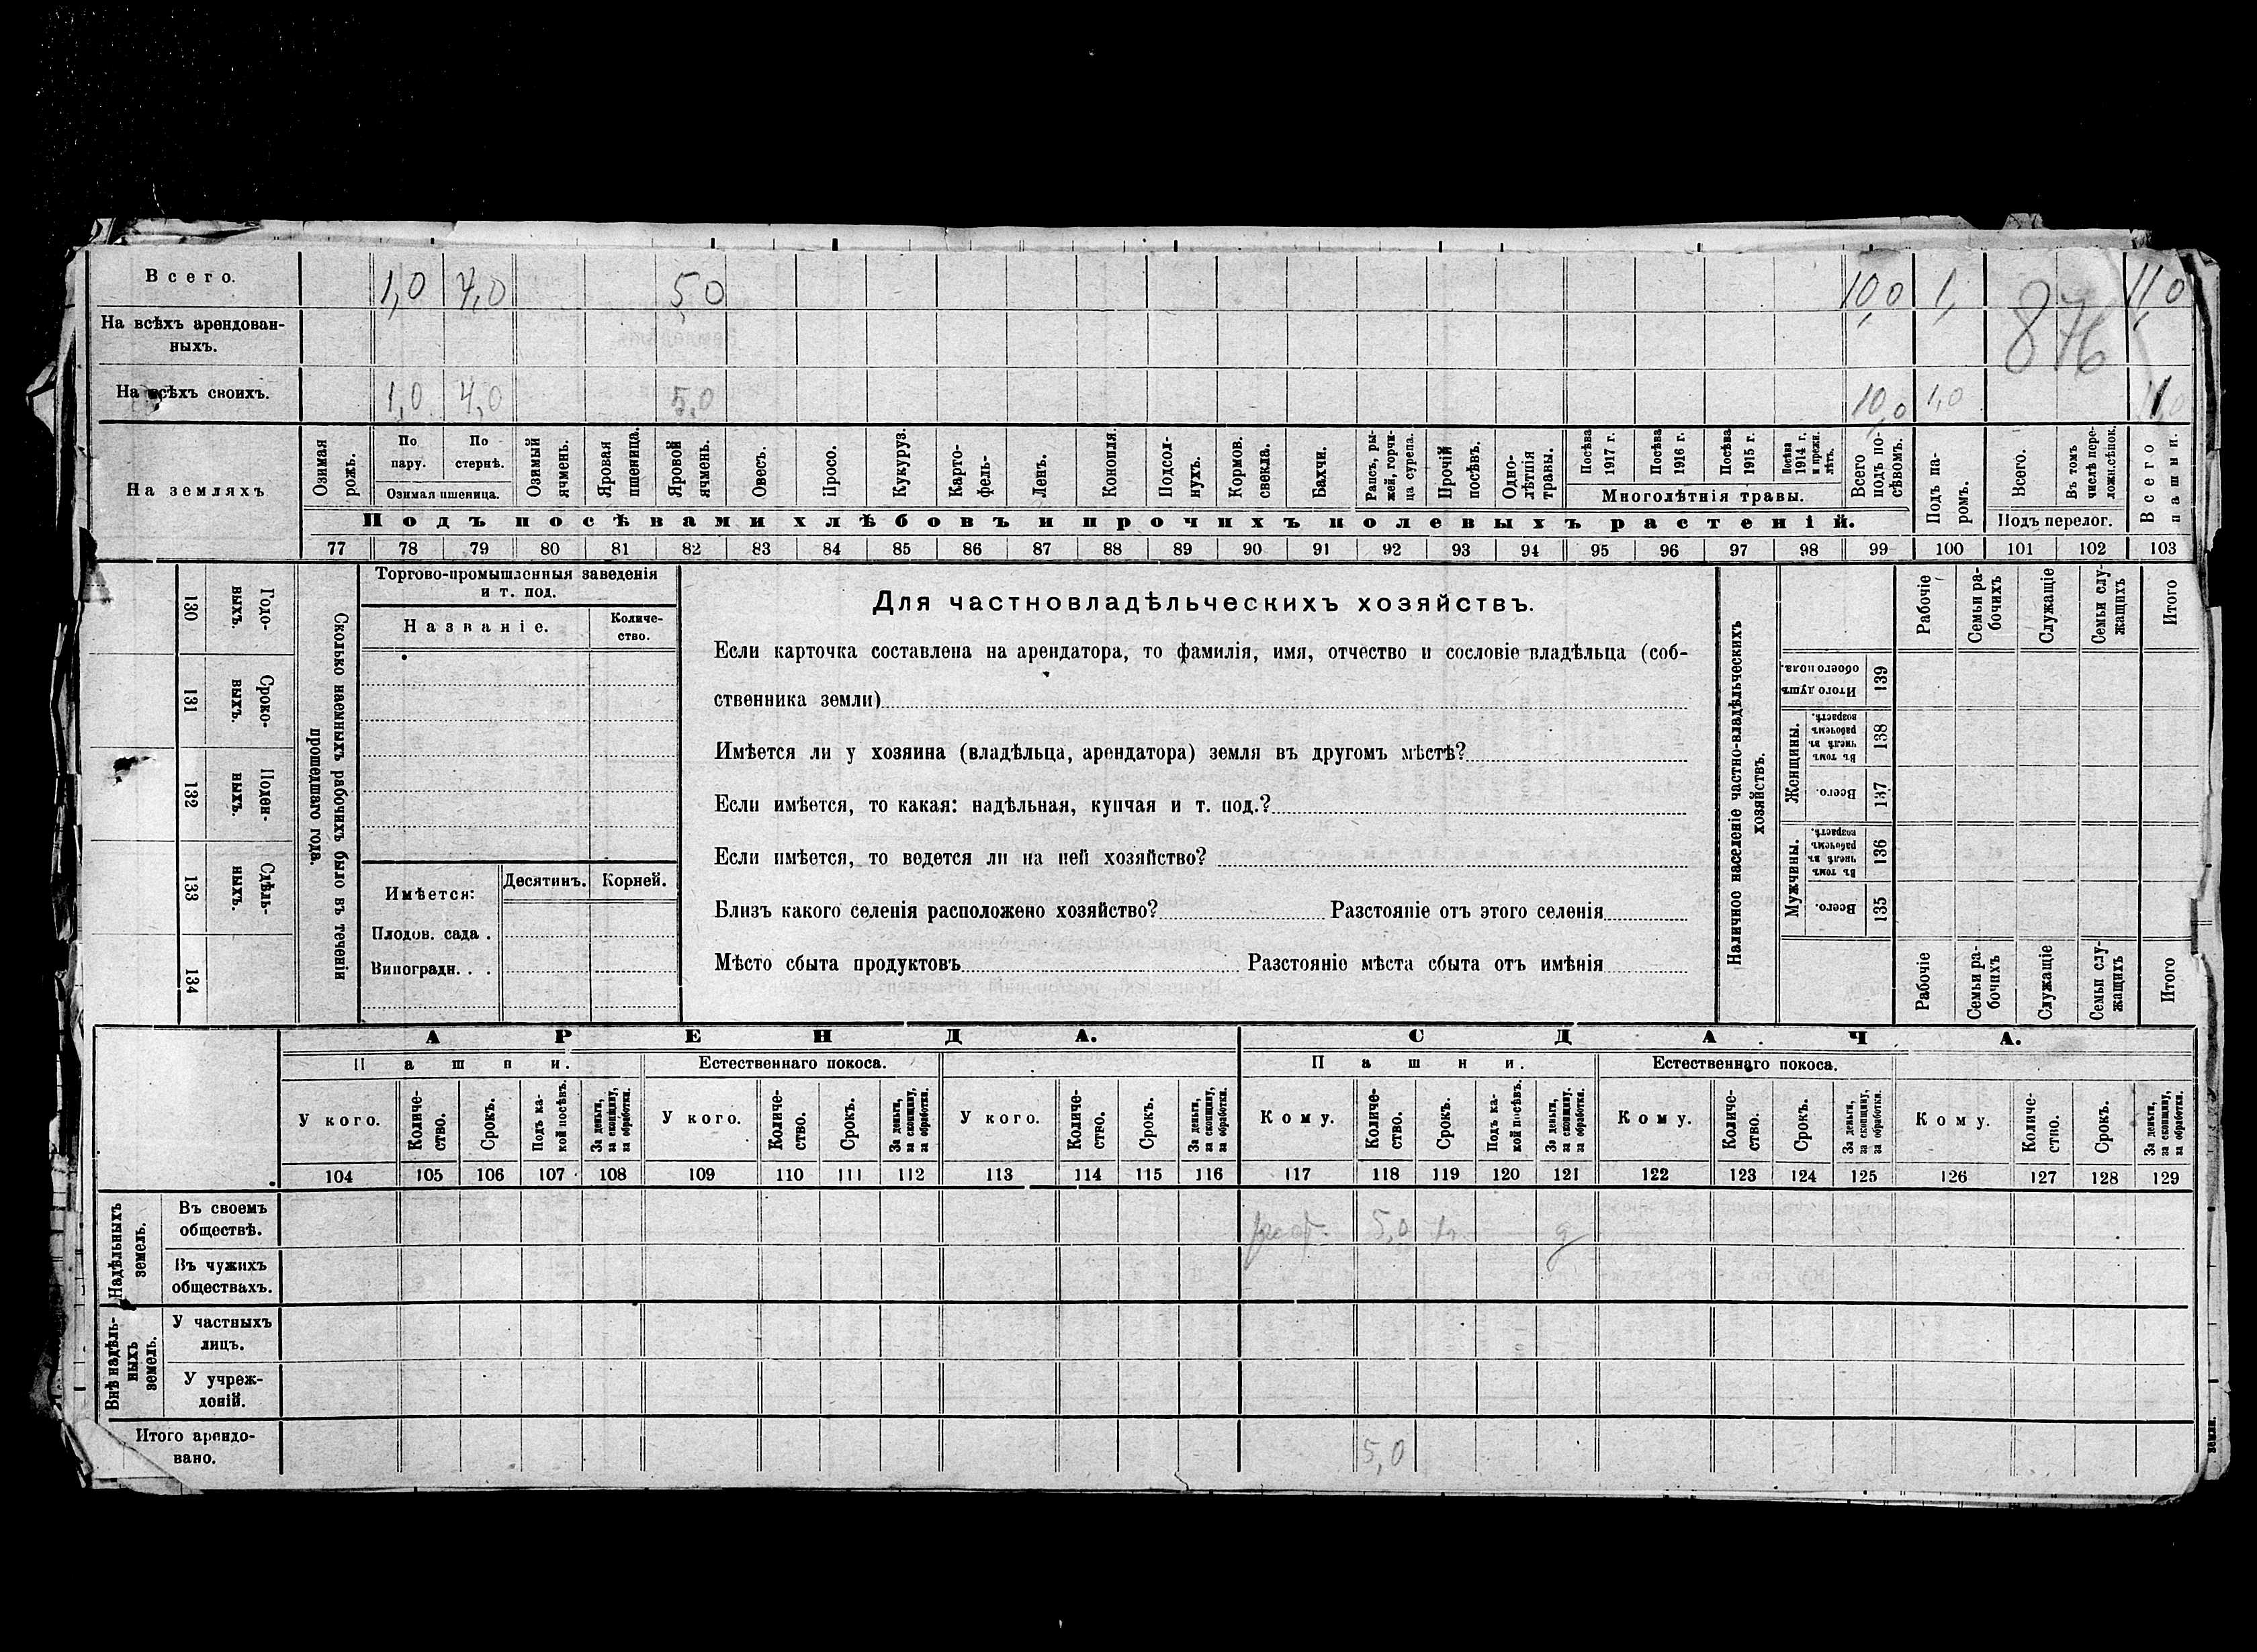 Всего. 1,0 4,0 5,0 10,0 1, 11,0
876
На всѣхъ арендован-
ныхъ.
На всѣхъ своихъ. 1,0 4,0 5,0 10,0 1,0
На земляхъ
Озимая рожь.
По пару.
По стернѣ.
Озимая пшеница.
Озимый ячмень.
Яровая пшеница.
Яровой ячмень.
Овесъ.
Просо.
Кукуруз.
Карто-
фель.
Ленъ.
Конопля.
Подсол-
нухъ.
Кормов. свекла.
Бахчи.
Рапсъ, ры-
жей, горчи-
ца сурепа.
Прочій посѣвъ.
Одно-
лѣтнія травы.
Посѣва 1917 г.
Посѣва 1916 г.
Посѣва 1915 г.
Посѣва 1914 г. и прежн. лѣтъ.
Многолѣтнія травы.
Всего подъ по-
сѣвомъ.
Подъ па-
ромъ.
Всего.
Въ томъ числѣ пере-
ложн. сѣнок.
Подъ перелог.
Всего пашни.
Подъ посѣвами хлѣбовъ и прочихъ полевыхъ растеній.
77 78 79 80 81 82 83 84 85 86 87 88 89 90 91 92 93 94 95 96 97 98 99 100 101 102 103
130 Годо-
выхъ.
131 Сроко-
выхъ.
132 Поден-
ныхъ.
133 Сдѣль-
ныхъ.
134
Сколько наемныхъ рабочихъ было въ теченіи
прошедшаго года.
Торгово-промышленныя заведенія
и т. под.
Названіе.
Количе-
ство.
Имѣется:
Десятинъ. Корней.
Плодов. сада .
Виноградн. . .
Для частновладѣльческихъ хозяйствъ.
Если карточка составлена на арендатора, то фамилія, имя, отчество и сословіе владѣльца (соб-
ственника земли)
Имѣется ли у хозяина (владѣльца, арендатора) земля въ другомъ мѣстѣ?
Если имѣется, то какая: надѣльная, купчая и т. под.?
Если имѣется, то ведется ли на ней хозяйство?
Близъ какого селенія расположено хозяйство? Разстояніе отъ этого селенія
Мѣсто сбыта продуктовъ Разстояніе мѣста сбыта отъ имѣнія
Наличное населеніе частно-владѣльческихъ
хозяйствъ.
Рабочіе
Семьи ра-
бочихъ
Служащіе
Семьи слу-
жащихъ
Итого
139 Итого душъ обоего пола.
Женщины.
138 Въ томъ числѣ въ рабочемъ возрастѣ.
137 Всего.
Мужчины.
136 Въ томъ числѣ въ рабочемъ возрастѣ.
135 Всего.
Рабочіе
Семьи ра-
бочихъ
Служащіе
Семьи слу-
жащихъ
Итого
АРЕНДА. СДАЧА.
Пашни. Естественнаго покоса. Пашни. Естественнаго покоса.
У кого.
Количе-
ство.
Срокъ.
Подъ ка-
кой посѣвъ.
За деньги, за скопщину, за обработки.
У кого.
Количе-
ство.
Срокъ.
За деньги, за скопщину, за обработки.
У кого.
Количе-
ство.
Срокъ.
За деньги, за скопщину, за обработки.
Кому.
Количе-
ство.
Срокъ.
Подъ ка-
кой посѣвъ.
За деньги, за скопщину, за обработки.
Кому.
Количе-
ство.
Срокъ.
За деньги, за скопщину, за обработки.
Кому.
Количе-
ство.
Срокъ.
За деньги, за скопщину, за обработки.
104 105 106 107 108 109 110 111 112 113 114 115 116 117 118 119 120 121 122 123 124 125 126 127 128 129
Надѣльныхъ
земель.
Въ своемъ
обществѣ. 5,0
Въ чужихъ
обществахъ.
Внѣ надѣль-
ныхъ
земель.
У частныхъ
лицъ.
У учреж-
деній.
Итого арендо-
вано. 5,0